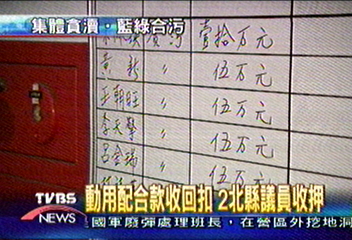 集體貪瀆，藍綠合污
壹拾万元
黃新 〃 伍万元
王朝旺 〃 伍万元
李天擎 〃 伍万元
呂金瑞 〃 伍万元
伍万元
動用配合款收回扣 2北縣議員收押
TVBS
NEWS
國軍廢彈處理班長，在營區外挖地洞